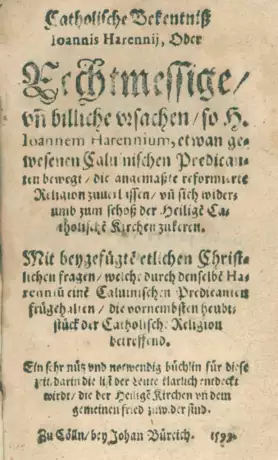 Catholische Bekentniß
Ioannis Harennij, Oder
Rechtmessige/
vñ billiche vrsachen / so H.
Ioannem Harennium, etwan ge-
wesenen Caluinischen Predican-
ten bewegt / die angemaßte reformierte
Religion zuuerlassen / vñ sich wider-
umb zum schoß der Heiligẽ Ca-
tholischẽ Kirchen zukeren.
Mit beygefügtẽ etlichen Christ-
lichen fragen / welche durch denselbẽ Ha-
renniũ einẽ Caluinischen Predicanten
fürgehalten / die vornembsten heubt-
stück der Catholisch. Religion
betreffend.
Ein sehr nütz vnd notwendig büchlin für diese
zeit / darin die list der Leute klarlich entdeckt
wirdt / die der Heiligẽ Kirchen vñ dem
gemeinen fried zuw. der sind.
Zu Cölln / bey Johan Büreich. 1599.